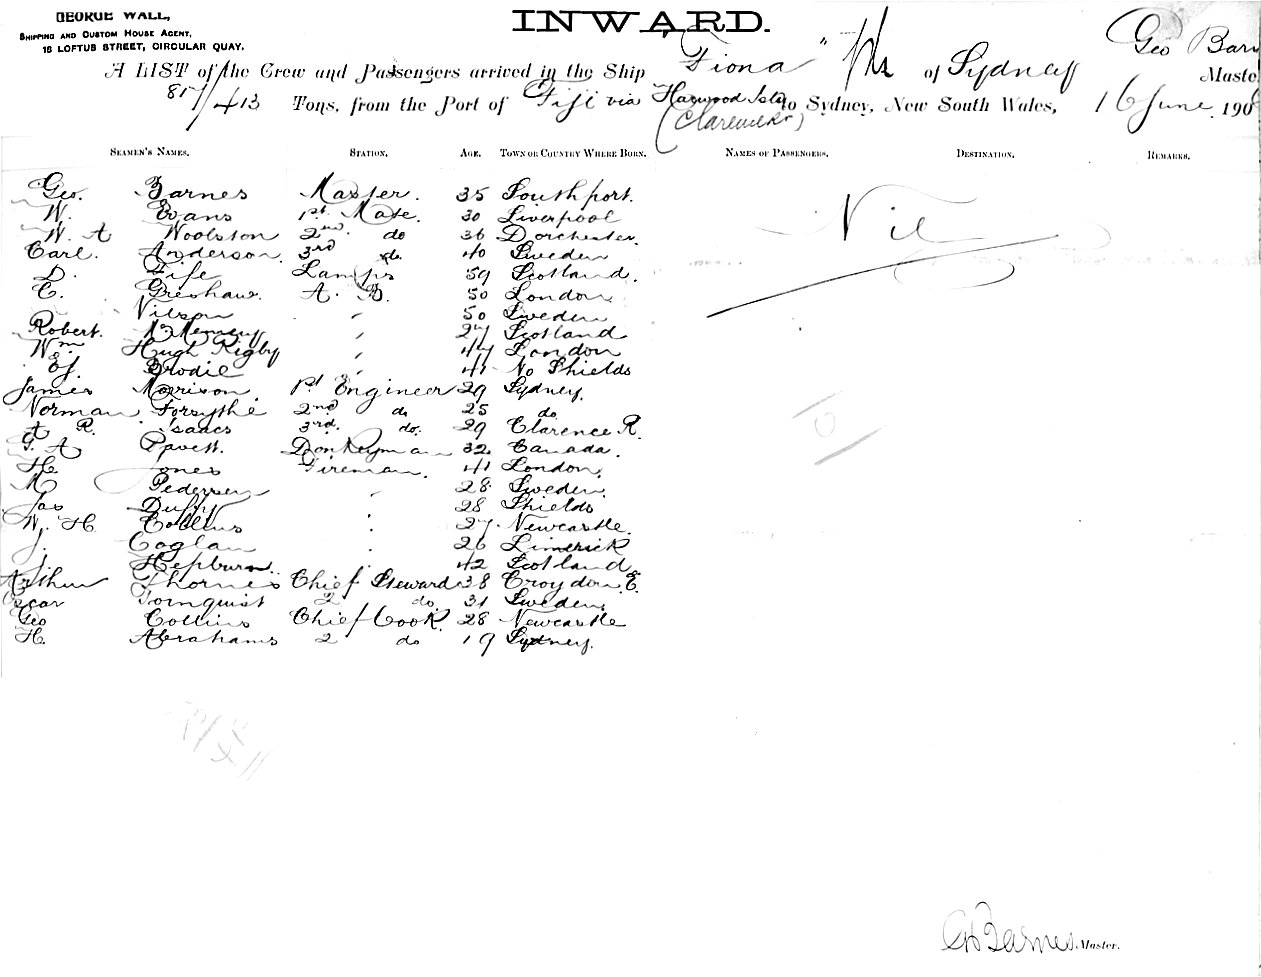 GEORGE WALL,
SHIPPING AND CUSTOM HOUSE AGENT,
16 LOFTUS STREET, CIRCULAR QUAY.
INWARD.
A LIST of the Crew and Passengers arrived in the Ship Fiona of Sydney Geo Barn
Master
817/413 Tons, from the Port of Fiji via Harwood Isld to Sydney, New South Wales, 16 June 190
(Clarence Rr)
SEAMEN'S NAMES. STATION. AGE. TOWN OR COUNTRY WHERE BORN. NAMES OF PASSENGERS. DESTINATION. REMARKS.
Geo. Barnes Master. 35 Southport.
W. Evans 1st Mate. 30 Liverpool
W. A Woolston 2nd do 36 Dorchester.
Carl. Anderson. 3rd do. 40 Sweden
D. Fife Lamps 59 Scotland.
C. Gresham. A. B. 50 London
Nilson " 50 Sweden
Robert. " 27 Scotland
Wm Hugh Rigby " 47 London
Ef. Brodie " 41 No Shields
James Morrison. 1st Engineer 29 Sydney.
Norman Forsythe 2nd do 25 do
A R. Isaacs 3rd. do. 29 Clarence R.
G. A Pavett. Donkeyman 32 Canada.
H Jones Fireman. 41 London.
M Pedersen " 28 Sweden.
Jas Duffy " 28 Shields
W. H Collins " 27 Newcastle.
J. Coglan " 26 Limerick
J. Hepburn. " 42 Scotland
Arthur Thornes Chief Steward 38 Croydon E.
Oscar Tornquist 2 do. 31 Sweden.
Geo Collins Chief Cook. 28 Newcastle
H. Abrahams 2 do 19 Sydney.
Nil
GH Barnes Master.